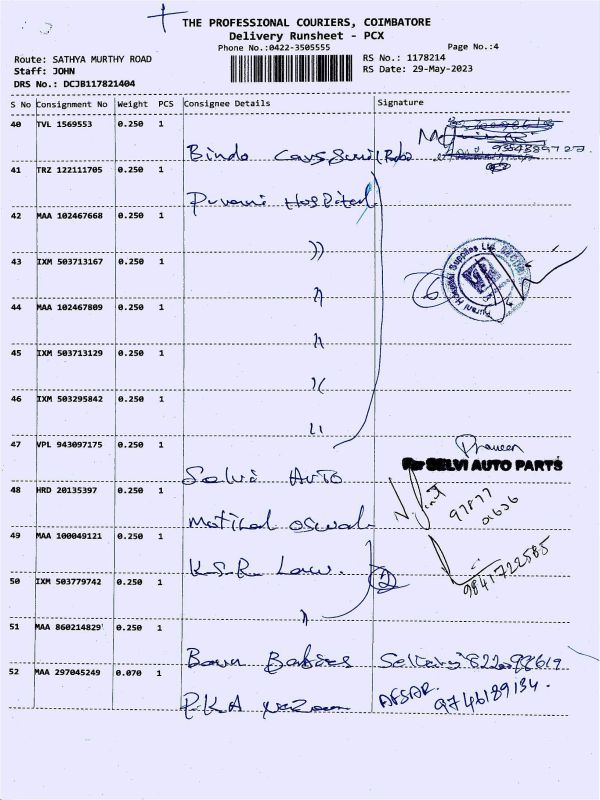 THE PROFESSIONAL COURIERS, COIMBATORE
Delivery Runsheet - PCX
Phone No.:0422-3505555
Page No.:4
Route: SATHYA MURTHY ROAD
RS No.: 1178214
Staff: JOHN
RS Date: 29-May-2023
DRS No.: DCJB117821404
S No Consignment No Weight PCS Consignee Details Signature
40 TVL 1569553 0.250 1
Bindo Cars
41 TRZ 122111705 0.250 1
Puvani Hospital
42 MAA 102467668 0.250 1
"
43 IXM 503713167 0.250 1
"
44 MAA 102467809 0.250 1
"
45 IXM 503713129 0.250 1
"
46 IXM 503295842 0.250 1
"
6
Purani Hospital Supplies Ltd
47 VPL 943097175 0.250 1
Selvi Auto
Praveen
For SELVI AUTO PARTS
48 HRD 20135397 0.250 1
Motilal oswal
49 MAA 100049121 0.250 1
K.S.R Law.
50 IXM 503779742 0.250 1
"
2
9841722585
51 MAA 860214829 0.250 1
Born Babies
52 MAA 297045249 0.070 1
P.K.A
AFSAR.
9746189134.